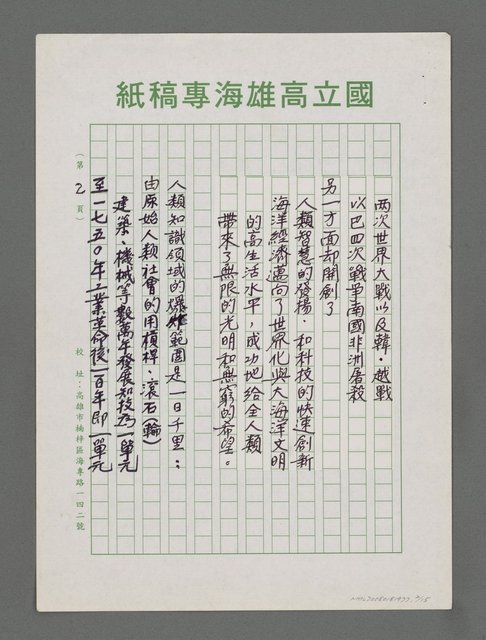 國立高雄海專稿紙
兩次世界大戰以及韓、越戰
以巴四次戰爭南國非洲屠殺
另一方面却開創了
人類智慧的發揚、和科技的快速創新
海洋經濟邁向了世界化與大海洋文明
的高生活水平，成功地給全人類
帶來了無限的光明和無窮的希望。
人類知識領域的爆炸範圍是一日千里：
由原始人類社會的用槓桿、滾石（輪）
建築、機械等數萬年發展知技為一單元
至一七五〇年工業革命後二百年即一單元
（第 2 頁）
校 址：高雄市楠梓區海專路一四二號